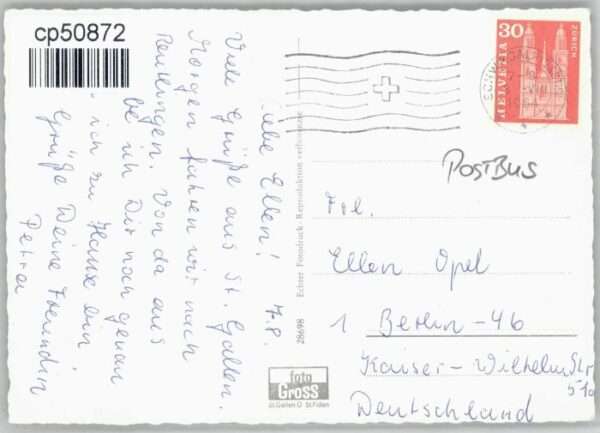 cp50872
7.8.
Liebe Ellen!
Viele Grüße aus St. Gallen.
Morgen fahren wir nach
Reutlingen. Von da aus
be ich Dir noch genau
ich zu Hause bin
Grüße Deine Freundin
Petra
28698 Echter Fotodruck - Reproduktion verboten
foto
GROSS
St.Gallen O St.Fiden
30
HELVETIA
ZÜRICH
POSTBUS
Frl.
Ellen Opel
1 Berlin-46
Kaiser-Wilhelm Str
51a
Deutschland